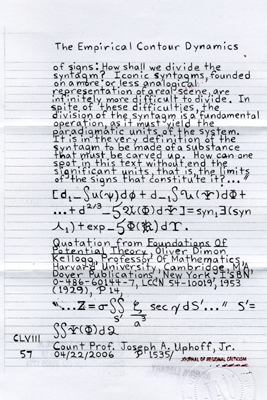 The Empirical Contour Dynamics
of signs: How shall we divide the
syntagm? Iconic syntagms, founded
on a more or less analogical
representation of a real scene, are
infinitely more difficult to divide. In
spite of these difficulties, the
division of the syntagm is a fundamental
operation, as it must yield the
paradigmatic units of the system.
It is in the very definition of the
syntagm to be made of a substance
that must be carved up. How can one
spot in this text without end the
significant units, that is, the limits
of the signs that constitute it?..."
Quotation from Foundations Of
Potential Theory, Oliver Dimon
Kellogg, Professor Of Mathematics
Harvard University, Cambridge, MA
Dover Publications, New York, ISBN
0-486-60144-7, LCCN 54-10019, 1953
(1929), P 14,
"...Z = σ∫∫ ζ/a³ sec γ dS'..." S' =
S'
∫∫Ψ(Φ)dΩ
CLVIII
57
Count Prof. Joseph A. Uphoff, Jr.
04/22/2006 P 1535/
JOURNAL OF REGIONAL CRITICISM